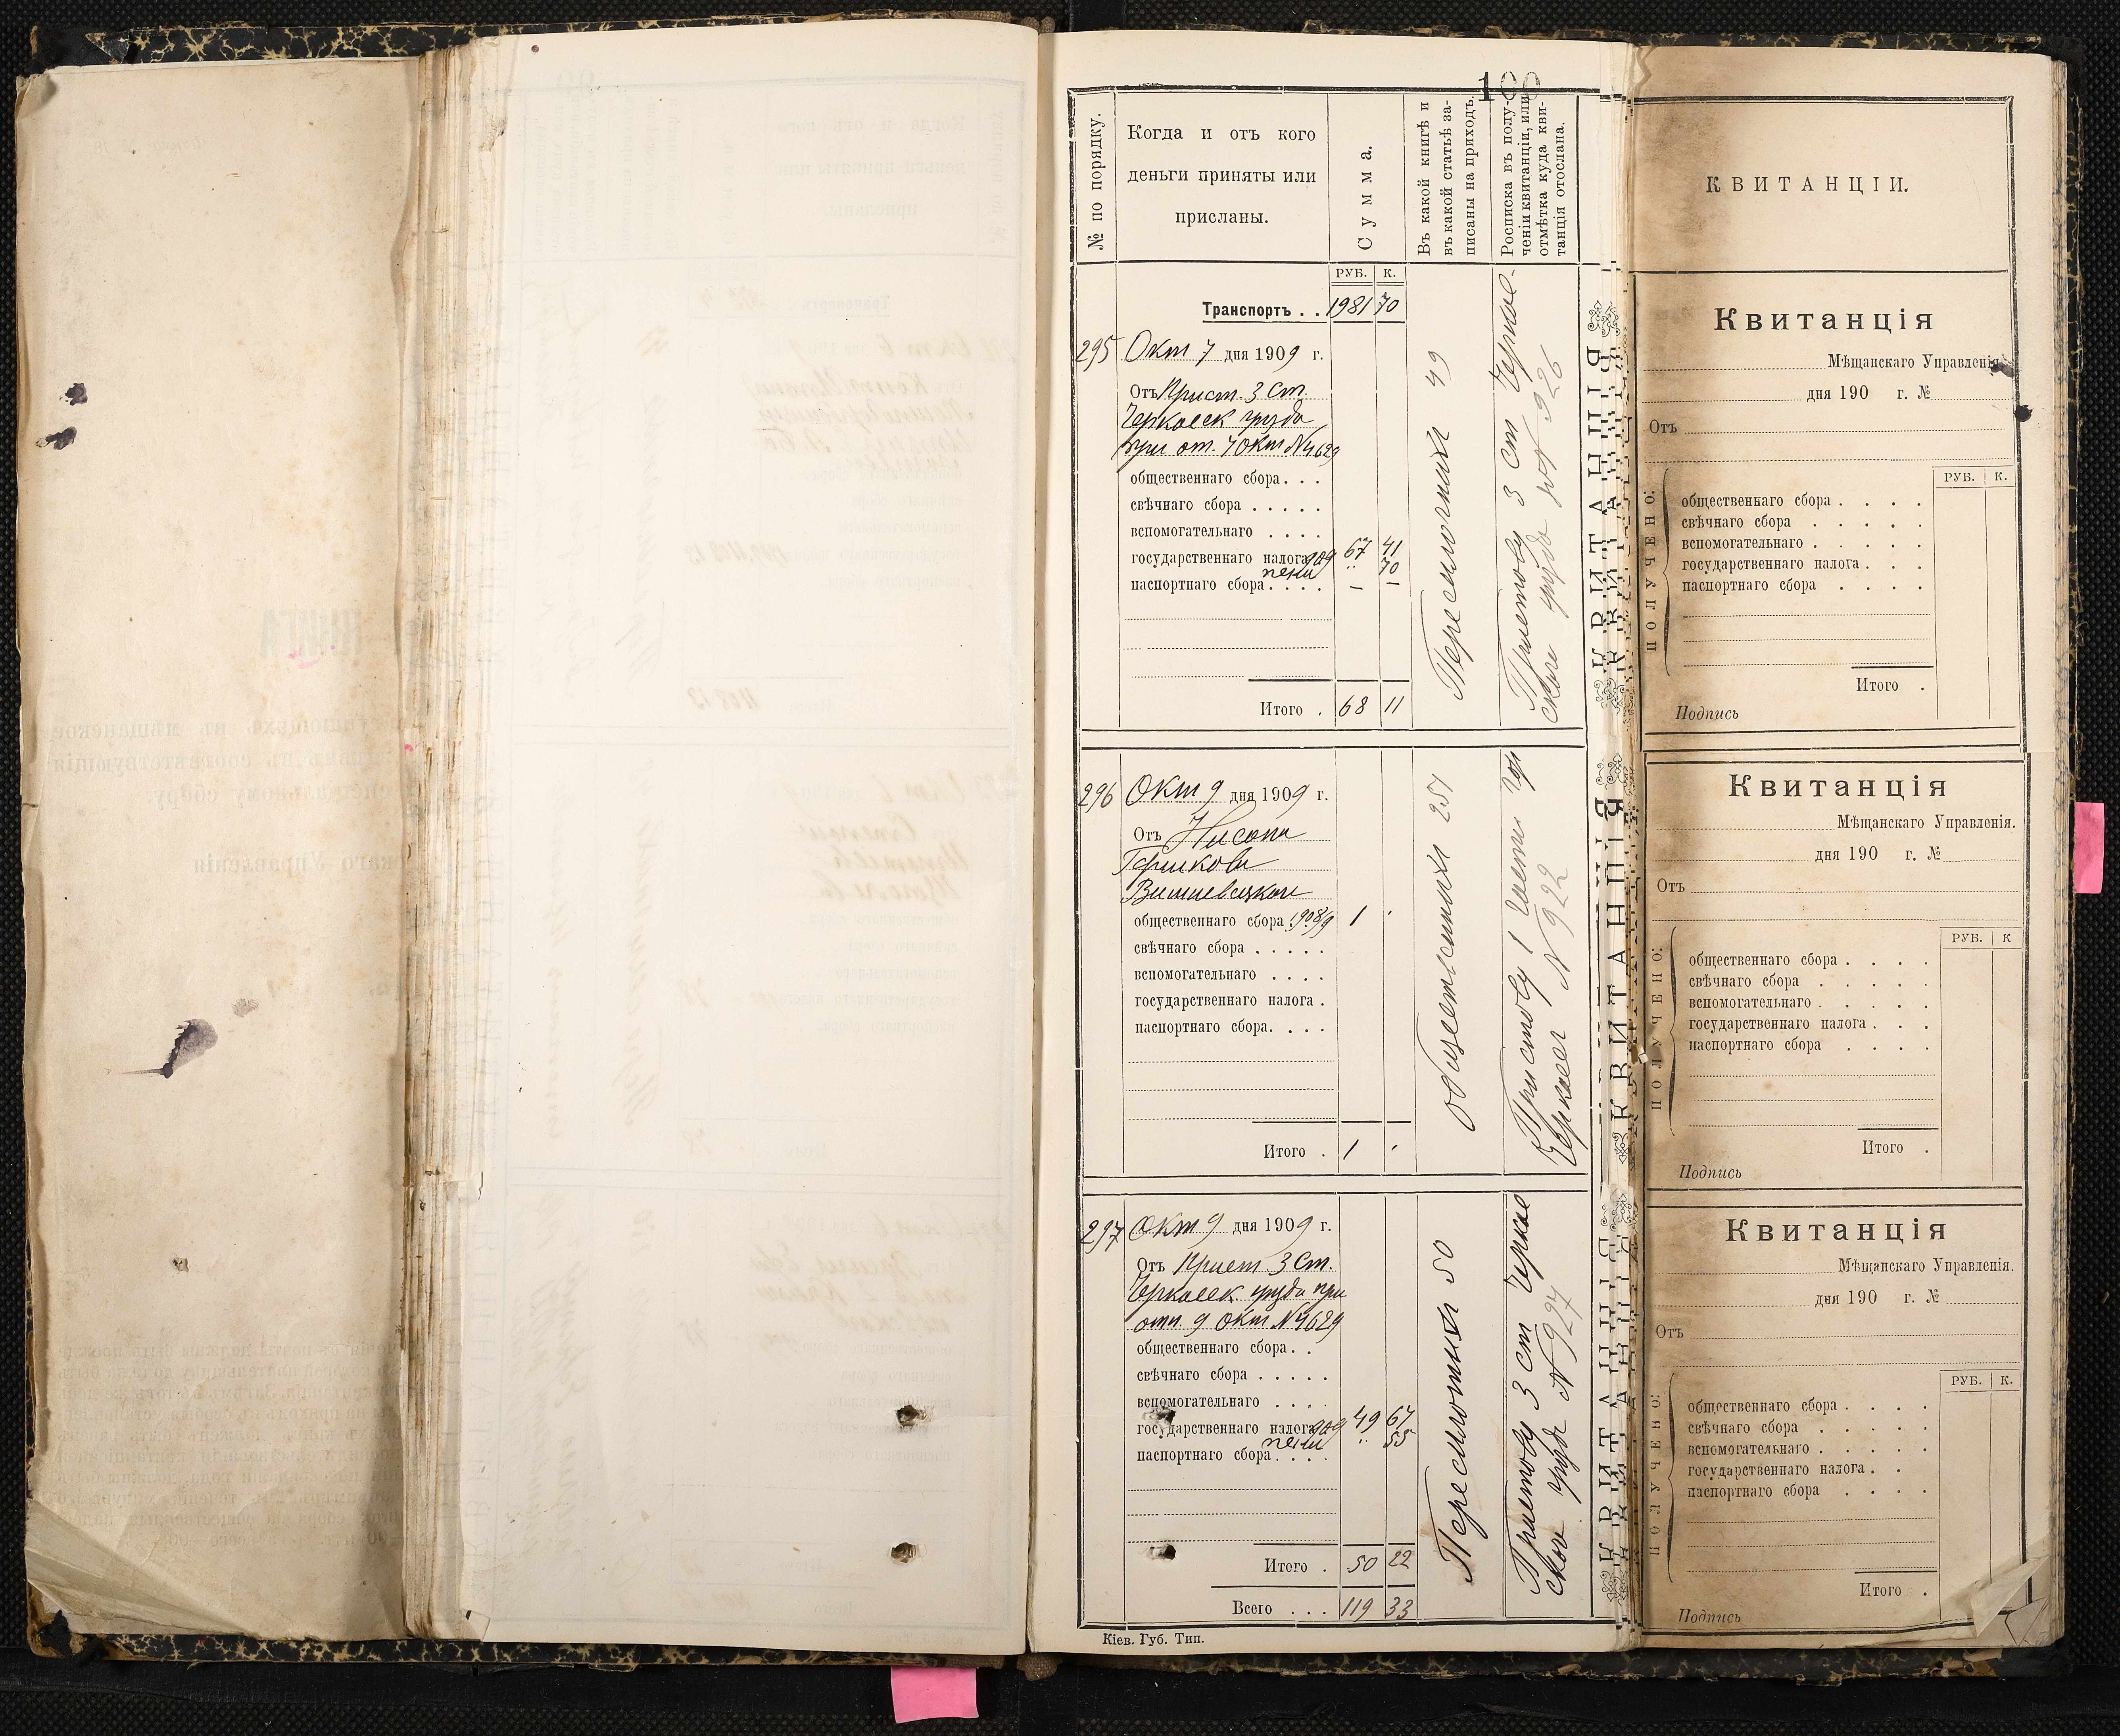 100
№ по порядку.
Когда и отъ кого
деньги приняты или
присланы.
Сумма.
Въ какой книгѣ и
въ какой статьѣ за-
писаны на приходъ.
Росписка въ полу-
ченіи квитанціи, или
отмѣтка куда кви-
танція отослана.
РУБ. К.
Транспортъ . . 1981 70
295 Окт 7 дня 1909 г.
Отъ Прист. 3 Ст.
Черкасск уѣзда
при от. 7 Окт № 4629
общественнаго сбора . . .
свѣчнаго сбора . . . . .
вспомогательнаго . . . .
государственнаго налога 909 67 41
пени " 70
паспортнаго сбора . . . . – –
Итого . 68 11
Пересмлотный 49
Приставу 3 ст Черкас-
ского уѣзда № 926
296 Окт 9 дня 1909 г.
Отъ Нисона
Гершкова
Вишневецкаго
общественнаго сбора 1908/9 1 .
свѣчнаго сбора . . . . .
вспомогательнаго . . . .
государственнаго налога .
паспортнаго сбора. . . .
Итого . 1 .
общественный 251
Приставу 1 части гор
Черкасс № 922
297 Окт 9 дня 1909 г.
Отъ Прист 3 Ст.
Черкасск уѣзда при
отн. 9 Окт № 4629
общественнаго сбора . .
свѣчнаго сбора . . . . .
вспомогательнаго . . . .
государственнаго налога 909 49 67
пени " 55
паспортнаго сбора . . . .
Итого . 50 22
Всего . . . 119 33
50
Приставу 3 ст Черкас
ского уѣзда № 927
Кіев. Губ. Тип.
КВИТАНЦІЯ
КВИТАНЦІЯ
КВИТАНЦІЯ
КВИТАНЦІИ.
Квитанція
Мѣщанскаго Управленія.
дня 190 г. №
Отъ
РУБ. К.
ПОЛУЧЕНО:
общественнаго сбора . . . .
свѣчнаго сбора . . . . .
вспомогательнаго . . . . .
государственнаго налога . . .
паспортнаго сбора . . . .
Итого .
Подпись
Квитанція
Мѣщанскаго Управленія.
дня 190 г. №
Отъ
РУБ. К
ПОЛУЧЕНО:
общественнаго сбора . . . .
свѣчнаго сбора . . . . .
вспомогательнаго . . . . .
государственнаго налога . . .
паспортнаго сбора . . . .
Итого .
Подпись
Квитанція
Мѣщанскаго Управленія.
дня 190 г. №
Отъ
РУБ. К.
ПОЛУЧЕНО:
общественнаго сбора . . . .
свѣчнаго сбора . . . . .
вспомогательнаго . . . . .
государственнаго налога . .
паспортнаго сбора . . . .
Итого .
Подпись